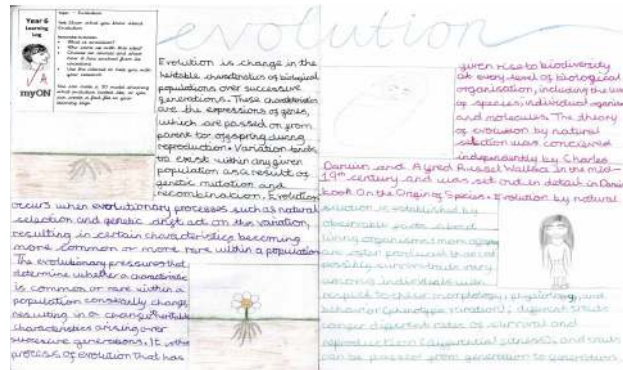 evolution
Year 6
Learning
Log
myON
Evolution is change in the
heritable characteristics of biological
populations over successive
generations. These characteristics
are the expressions of genes,
which are passed on from
parent to offspring during
reproduction. Variation tends
to exist within any given
population as a result of
genetic mutation and
recombination. Evolution
occurs when evolutionary processes such as natural
selection and genetic drift act on this variation,
resulting in certain characteristics becoming
more common or more rare within a population
The evolutionary pressures that
determine whether a characteristic
is common or rare within a
population constantly change,
resulting in a change heritable
characteristics arising over
successive generations. It is this
process of evolution that has
given rise to biodiversity
at every level of biological
organisation, including the
of species, individual organisms
and molecules. The theory
of evolution by natural
selection was conceived
independently by Charles
Darwin and Alfred Russel Wallace in the mid-
19th century and was set out in detail in
book On the Origin of Species. Evolution by natural
selection is established by
observable facts about
living organisms: more
are often produced than can
possibly survive: traits vary
among individuals with
respect to their morphology, physiology, and
behavior (phenotypic variation); different traits
confer different rates of survival and
reproduction (differential fitness); and traits
can be passed from generation to generation.